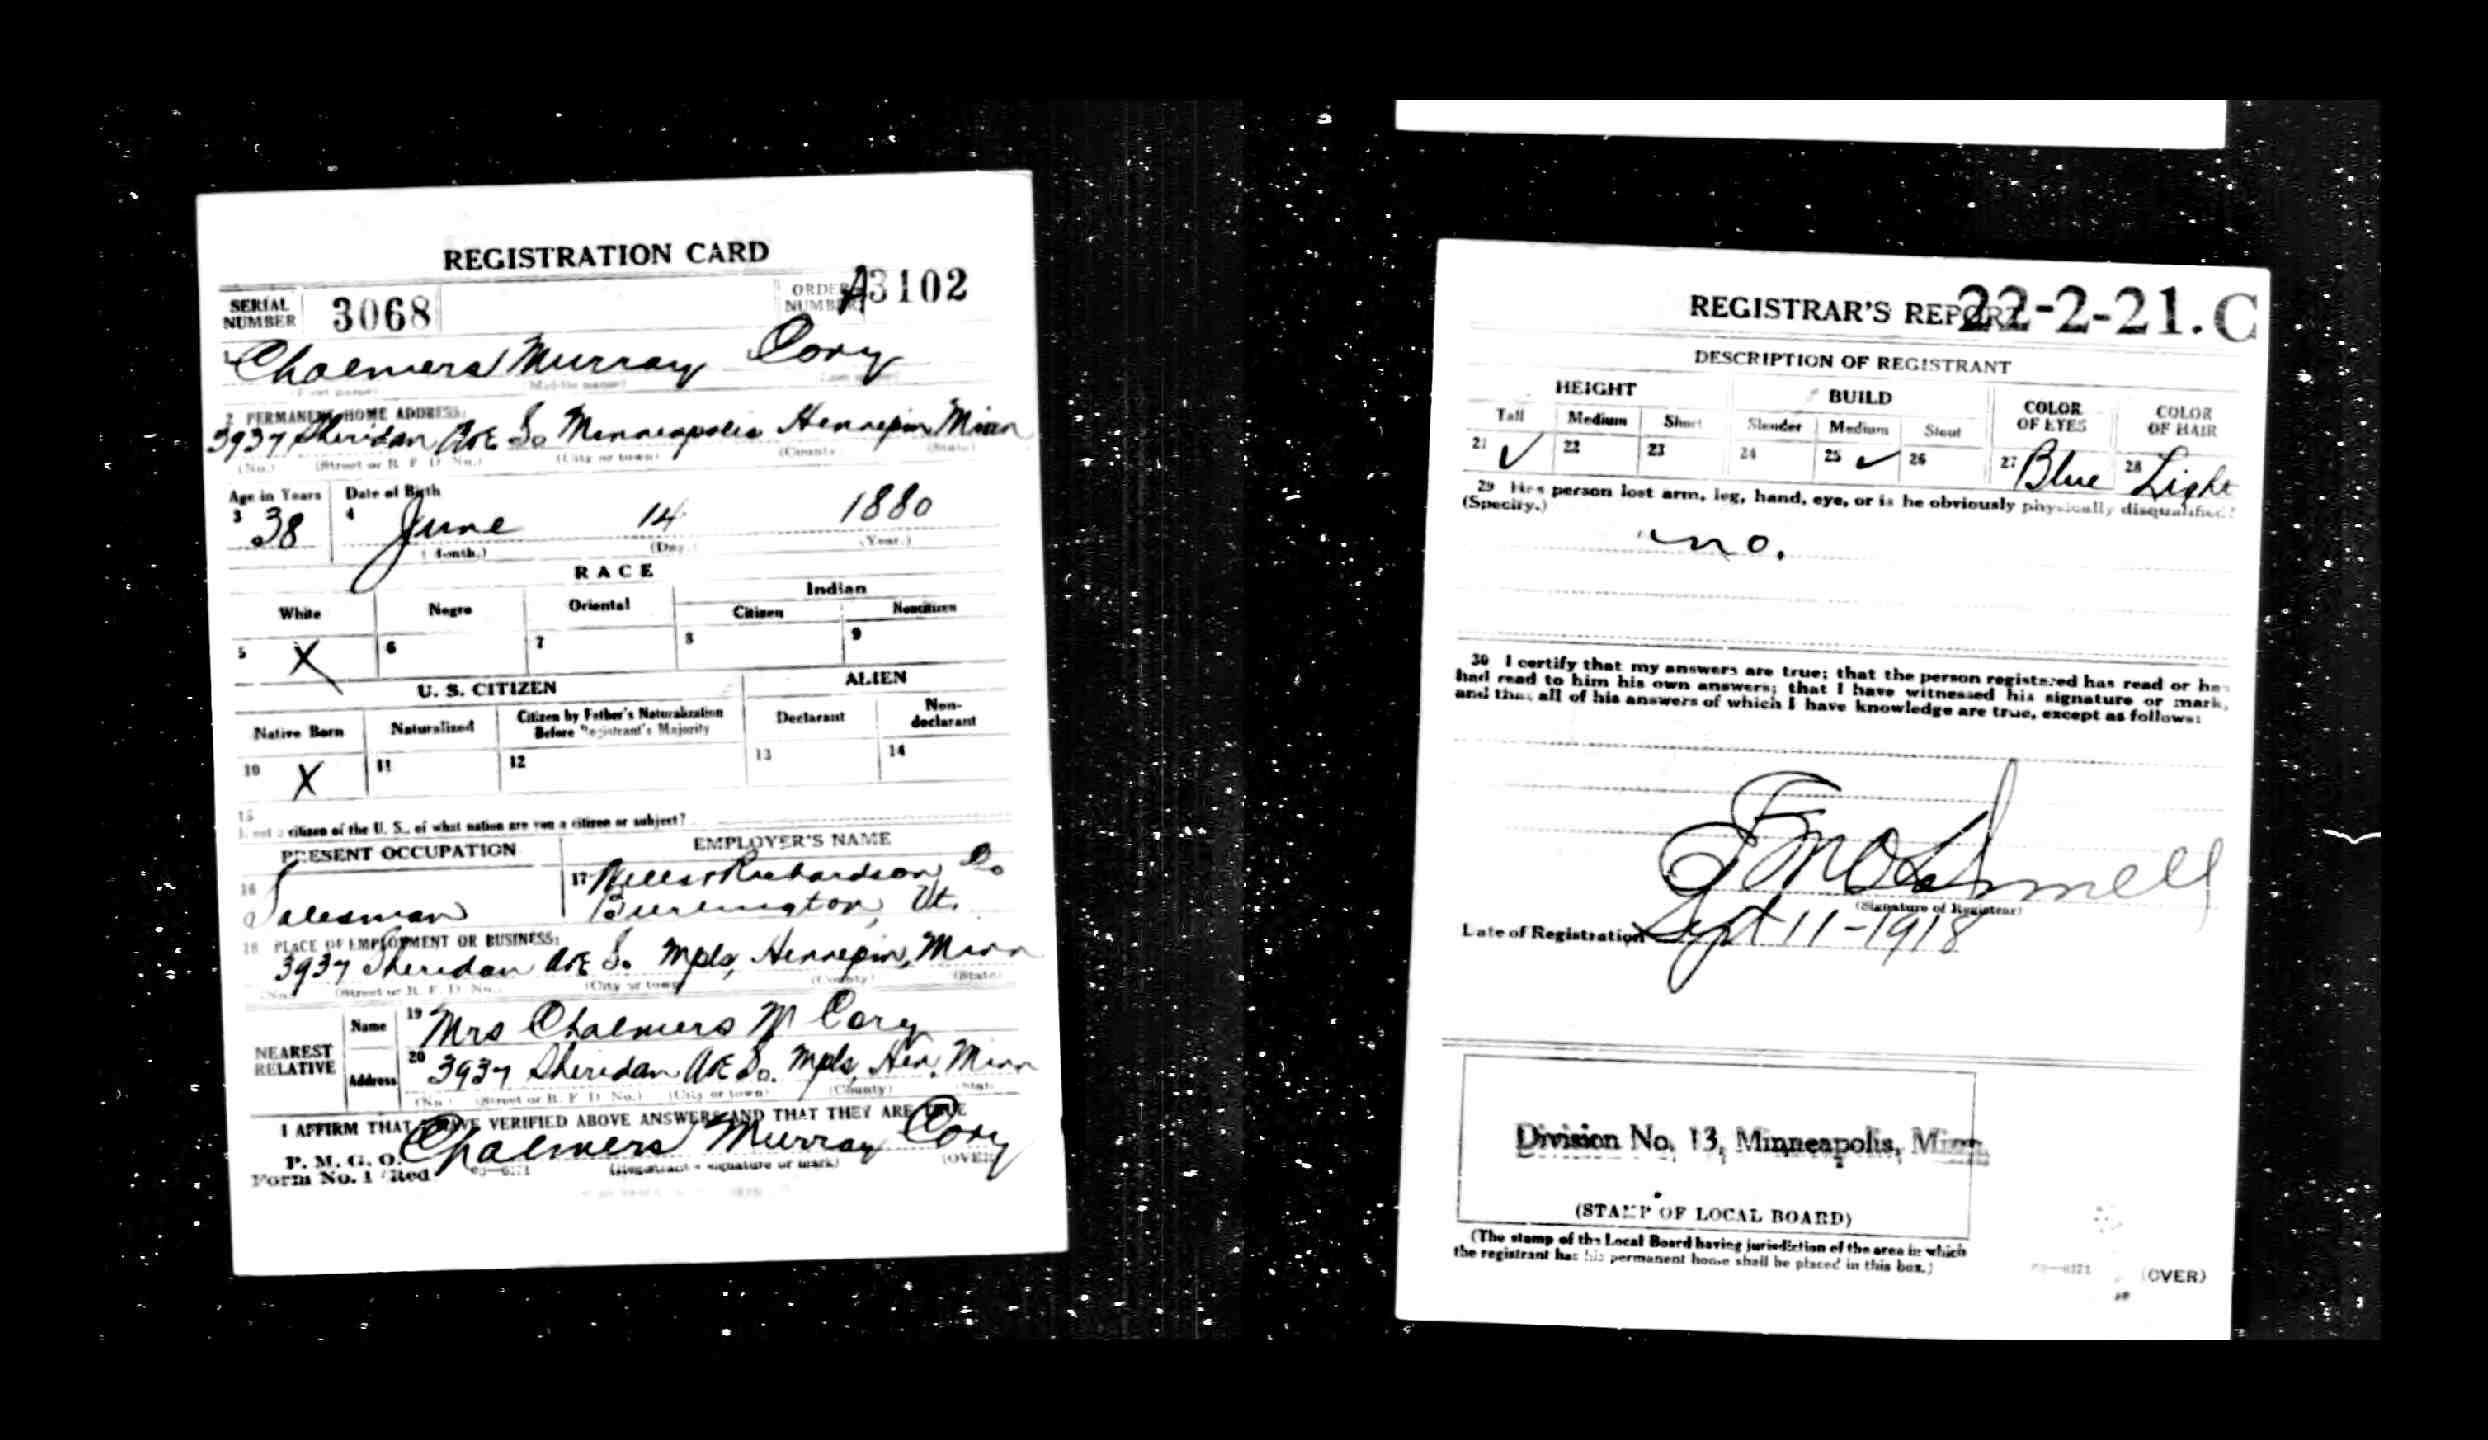 REGISTRATION CARD
SERIAL NUMBER 3068 ORDER NUMBER A3102
1 Chalmers Murray Cory
(First name) (Middle name) (Last name)
2 PERMANENT HOME ADDRESS:
3937 Sheridan Ave So Minneapolis Hennepin Minn
(No.) (Street or R. F. D. No.) (City or town) (County) (State)
Age in Years Date of Birth
3 38 4 June 14 1880
(Month.) (Day.) (Year.)
RACE
White Negro Oriental Indian
Citizen Noncitizen
5 X 6 7 8 9
U. S. CITIZEN ALIEN
Native Born Naturalized Citizen by Father's Naturalization Before Registrant's Majority Declarant Non-declarant
10 X 11 12 13 14
15
If not a citizen of the U. S., of what nation are you a citizen or subject?
PRESENT OCCUPATION EMPLOYER'S NAME
16 Salesman 17 Wells & Richardson Co
Burlington, Vt.
18 PLACE OF EMPLOYMENT OR BUSINESS:
3937 Sheridan Ave So Mpls, Hennepin, Minn
(No.) (Street or R. F. D. No.) (City or town) (County) (State)
NEAREST RELATIVE Name 19 Mrs Chalmers M Cory
Address 20 3937 Sheridan Ave So. Mpls, Hen, Minn
(No.) (Street or R. F. D. No.) (City or town) (County) (State)
I AFFIRM THAT I HAVE VERIFIED ABOVE ANSWERS AND THAT THEY ARE TRUE
P. M. G. O.
Form No. 1 (Red) Chalmers Murray Cory
(Registrant's signature or mark) (OVER)
REGISTRAR'S REPORT 22-2-21. C
DESCRIPTION OF REGISTRANT
HEIGHT BUILD COLOR OF EYES COLOR OF HAIR
Tall Medium Short Slender Medium Stout
21 ✓ 22 23 24 25 ✓ 26 27 Blue 28 Light
29 Has person lost arm, leg, hand, eye, or is he obviously physically disqualified?
(Specify.)
no.
30 I certify that my answers are true; that the person registered has read or has
had read to him his own answers; that I have witnessed his signature or mark,
and that all of his answers of which I have knowledge are true, except as follows:
(Signature of Registrar)
Date of Registration Sept 11-1918
Division No. 13, Minneapolis, Minn.
(STAMP OF LOCAL BOARD)
(The stamp of the Local Board having jurisdiction of the area in which
the registrant has his permanent home shall be placed in this box.)
(OVER)